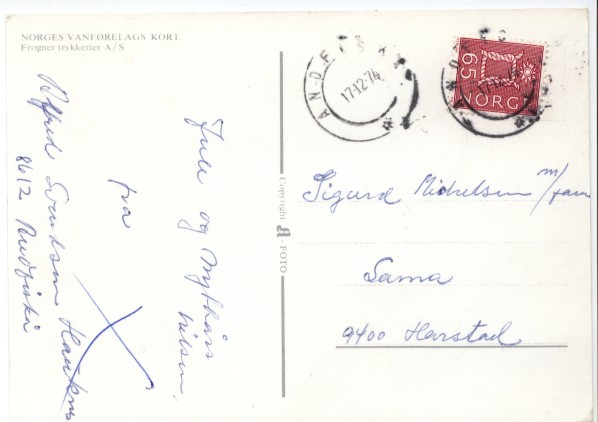 NORGES VANFØRELAGS KORT.
Frogner trykkerier A/S
Jule og nyttårs
hilsen,
fra
Alfred Svendsen
8612
Copyright A-FOTO
17.12.74
65
NORGE
17.12.74
Sigurd Mikkelsen m/fam
Sama
9400 Harstad